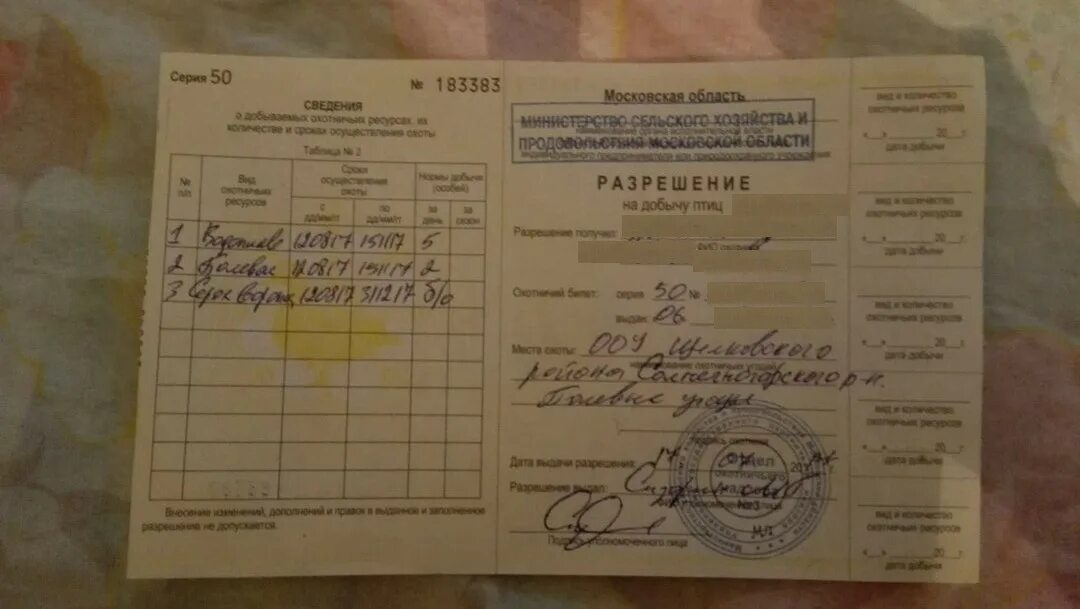 Серия 50
№ 183383
СВЕДЕНИЯ
о добываемых охотничьих ресурсах, их
количестве и сроках осуществления охоты
Таблица № 2
№ п/п
Вид охотничьих ресурсов
Сроки осуществления охоты
Нормы добычи (особей)
с дд/мм/гг
по дд/мм/гг
за день
за сезон
1 120817 151117 5
2 Полевая 120817 151117 2
3 120817 311217 б/о
Внесение изменений, дополнений и правок в выданное и заполненное
разрешение не допускается.
Московская область
МИНИСТЕРСТВО СЕЛЬСКОГО ХОЗЯЙСТВА И
ПРОДОВОЛЬСТВИЯ МОСКОВСКОЙ ОБЛАСТИ
РАЗРЕШЕНИЕ
на добычу птиц
Разрешение получил:
ФИО охотника
Охотничий билет: серия 50 №
выдан: 06
Места охоты: ООУ Щелковского
района Солнечногорского р-н.
Полевые угодья
подпись охотника
Дата выдачи разрешения: 17
Разрешение выдал:
Подпись уполномоченного лица
Отдел
охотничьего
надзора
№3
вид и количество
охотничьих ресурсов
«__»________20____г.
дата добычи
вид и количество
охотничьих ресурсов
«__»________20____г.
дата добычи
вид и количество
охотничьих ресурсов
«__»________20____г.
дата добычи
вид и количество
охотничьих ресурсов
«__»________20____г.
дата добычи
вид и количество
охотничьих ресурсов
«__»________20____г.
дата добычи